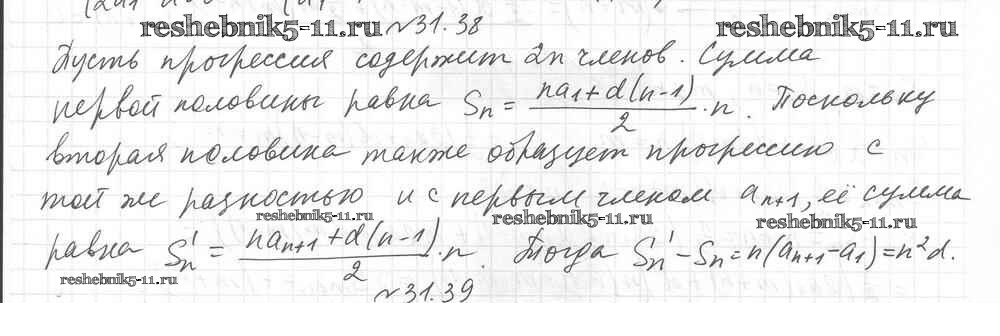 reshebnik5-11.ru №31.38 reshebnik5-11.ru
Пусть прогрессия содержит 2n членов. Сумма
первой половины равна Sₙ = (na₁+d(n-1))/2 ·n. Поскольку
вторая половина также образует прогрессию с
той же разностью и с первым членом aₙ₊₁, её сумма
reshebnik5-11.ru reshebnik5-11.ru reshebnik5-11.ru
равна Sₙ' = (naₙ₊₁+d(n-1))/2 ·n. Тогда Sₙ' - Sₙ = n(aₙ₊₁-a₁) = n²d.
reshebnik5-11.ru
№31.39